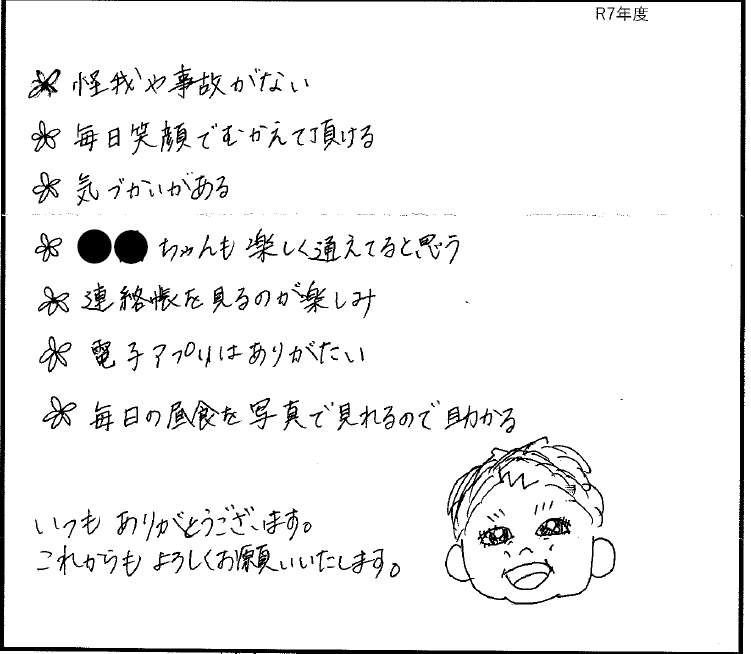 R7年度
怪我や事故がない
毎日笑顔でむかえて頂ける
気づかいがある
●●ちゃんも楽しく通えてると思う
連絡帳を見るのが楽しみ
電子アプリはありがたい
毎日の昼食を写真で見れるので助かる
いつもありがとうございます。
これからもよろしくお願いいたします。